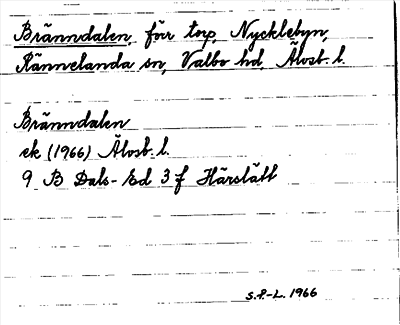 Bränndalen, förr torp, Nycklebyn,
Rännelanda sn, Valbo hd, Älvsb. l.
Bränndalen
ek (1966) Älvsb. l.
9 B Dals-Ed 3 f Härslätt
S.P.-L. 1966